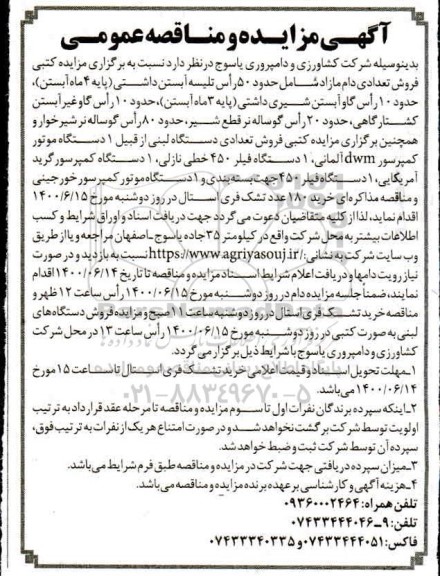 آگهی مزایده و مناقصه عمومی
بدینوسیله شرکت کشاورزی و دامپروری یاسوج درنظر دارد نسبت به برگزاری مزایده کتبی
فروش تعدادی دام مازاد شامل حدود ۵۰ رأس تلیسه آبستن داشتی (پایه ۴ ماه آبستن)،
حدود ۱۰ رأس گاو آبستن شیری داشتی (پایه ۴ ماه آبستن)، حدود ۱۰ رأس گاو غیر آبستن
کشتارگاهی، حدود ۲۰ رأس گوساله نر قطع شیر، حدود ۸۰ رأس گوساله نر شیرخوار و
همچنین برگزاری مزایده کتبی فروش تعدادی دستگاه لبنی از قبیل ۱ دستگاه موتور
کمپرسور dwm آلمانی، ۱ دستگاه فیلر ۴۵۰ خطی نازلی، ۱ دستگاه کمپرسور گرید
آمریکایی، ۱ دستگاه فیلر ۴۵۰ جهت بسته بندی و ۱ دستگاه موتور کمپرسور خورجینی
و مناقصه مذاکره‌ای خرید ۱۸۰ عدد تشک فری استال در روز دوشنبه مورخ ۱۴۰۰/۶/۱۵
اقدام نماید، لذا از کلیه متقاضیان دعوت می گردد جهت دریافت اسناد و اوراق شرایط و کسب
اطلاعات بیشتر به محل شرکت واقع در کیلومتر ۳۵ جاده یاسوج-اصفهان مراجعه و یا از طریق
وب سایت شرکت به نشانی: https://www.agriyasouj.ir/ نسبت به بازدید و در صورت
نیاز رویت دامها و دریافت اعلام شرایط اسناد مزایده و مناقصه تا تاریخ ۱۴۰۰/۰۶/۱۴ اقدام
نمایند، ضمناً جلسه مزایده دام در روز دوشنبه مورخ ۱۴۰۰/۰۶/۱۵ رأس ساعت ۱۲ ظهر و
مناقصه خرید تشک فری استال در روز دوشنبه ساعت ۱۱ صبح و مزایده فروش دستگاه‌های
لبنی به صورت کتبی در روز دوشنبه مورخ ۱۴۰۰/۰۶/۱۵ رأس ساعت ۱۳ در محل شرکت
کشاورزی و دامپروری یاسوج با شرایط ذیل برگزار می گردد.
۱-مهلت تحویل اسناد و قیمت اعلامی خرید تشک فری استال تا ساعت ۱۵ مورخ
۱۴۰۰/۰۶/۱۴ می باشد.
۲-اینکه سپرده برندگان نفرات اول تا سوم مزایده و مناقصه تا مرحله عقد قرارداد به ترتیب
اولویت توسط شرکت برگشت نخواهد شد و در صورت امتناع هر یک از نفرات به ترتیب فوق،
سپرده آن توسط شرکت ثبت و ضبط خواهد شد.
۳-میزان سپرده دریافتی جهت شرکت در مزایده و مناقصه طبق فرم شرایط می باشد.
۴-هزینه آگهی و کارشناسی بر عهده برنده مزایده و مناقصه می باشد.
تلفن همراه: ۰۹۳۶۰۰۰۲۴۶۴
تلفن: ۹-۰۷۴۳۳۴۴۴۰۴۶
فاکس: ۰۷۴۳۳۴۴۴۰۵۱ و ۰۷۴۳۳۳۴۰۳۳۵
۰۲۱-۸۸۳۴۹۶۷۰-۵